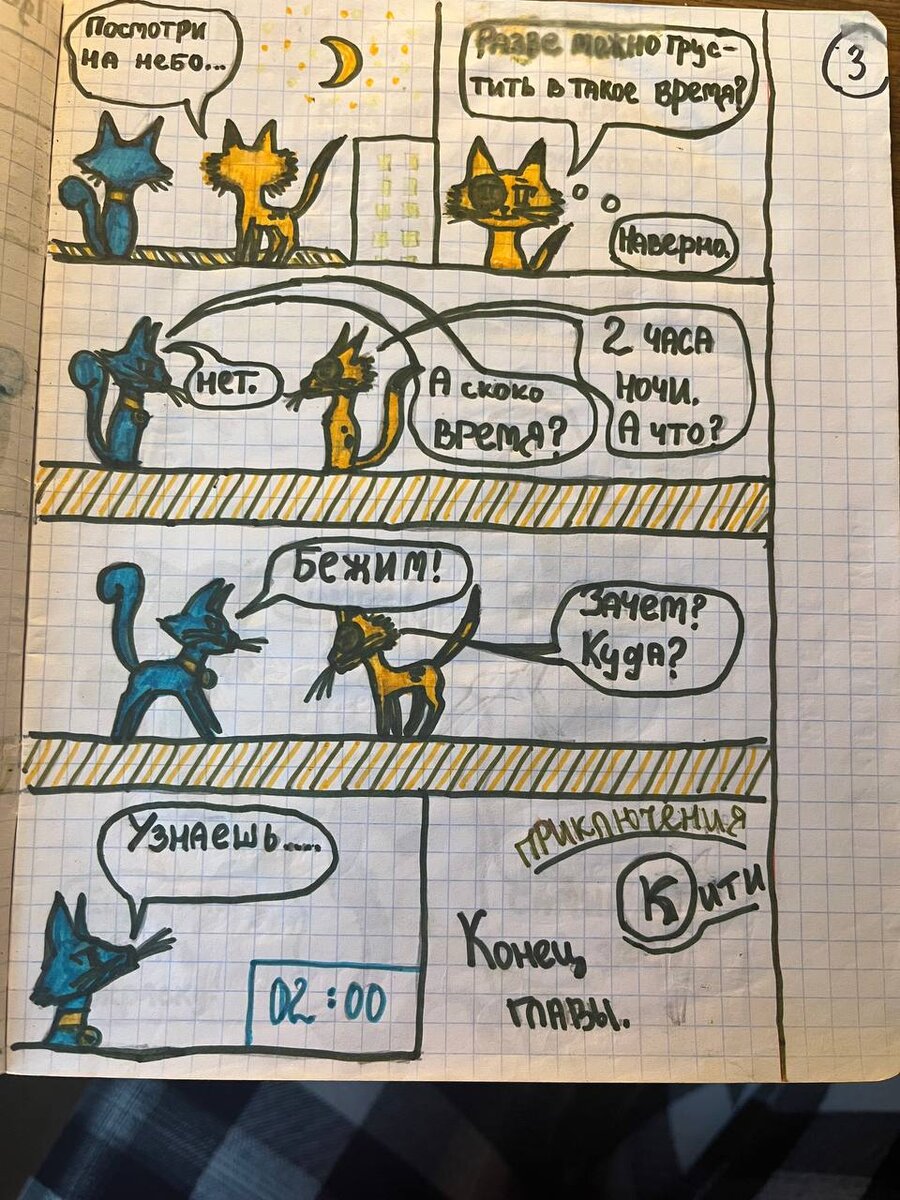 Посмотри
на небо...
Разве можно грус-
тить в такое время?
Наверно.
3
Нет.
А скоко
время?
2 часа
ночи.
А что?
Бежим!
Зачем?
Куда?
Узнаешь.....
02:00
Приключения
Кити
Конец
главы.